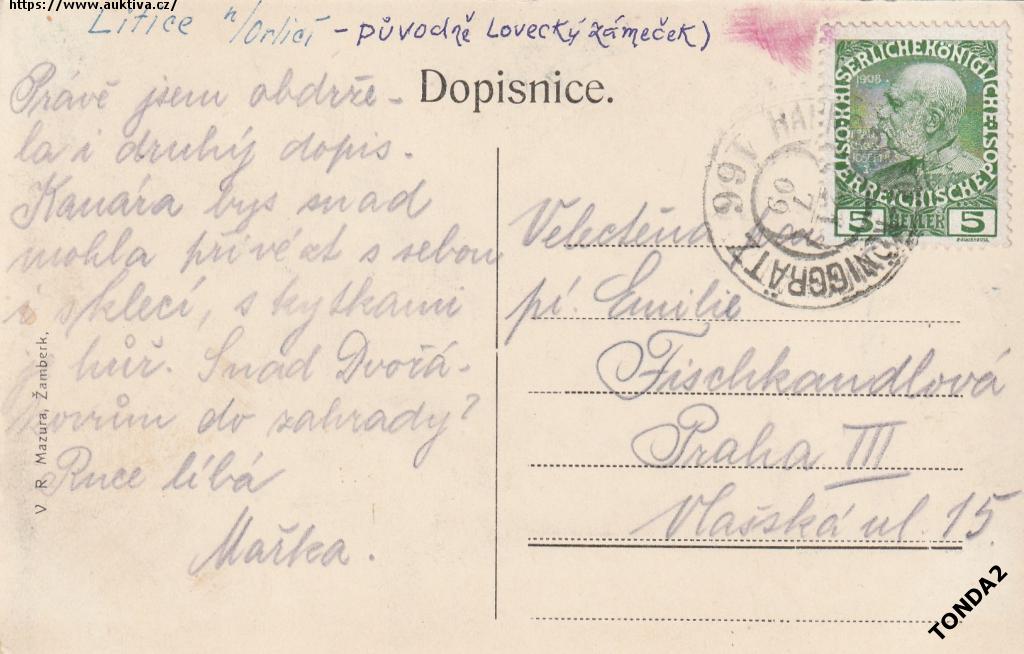 https://www.auktiva.cz/
Litice n/Orlicí - původně Lovecký zámeček)
Dopisnice.
Právě jsem obdrže-
la i druhý dopis.
Kanára bys snad
mohla přivézt s sebou
i s klecí, s kytkami
je hůř. Snad Dvořá-
kovům do zahrady?
Ruce líbá
Mařka.
V. R. Mazura, Žamberk.
KAISERLICHE KÖNIGLICHE ÖSTERREICHISCHE POST
1908
5 HELLER 5
KÖNIGGRÄTZ
166
Velectěná
pí. Emilie
Fischkandlová
Praha III
Vlašská ul. 15.
TONDA2